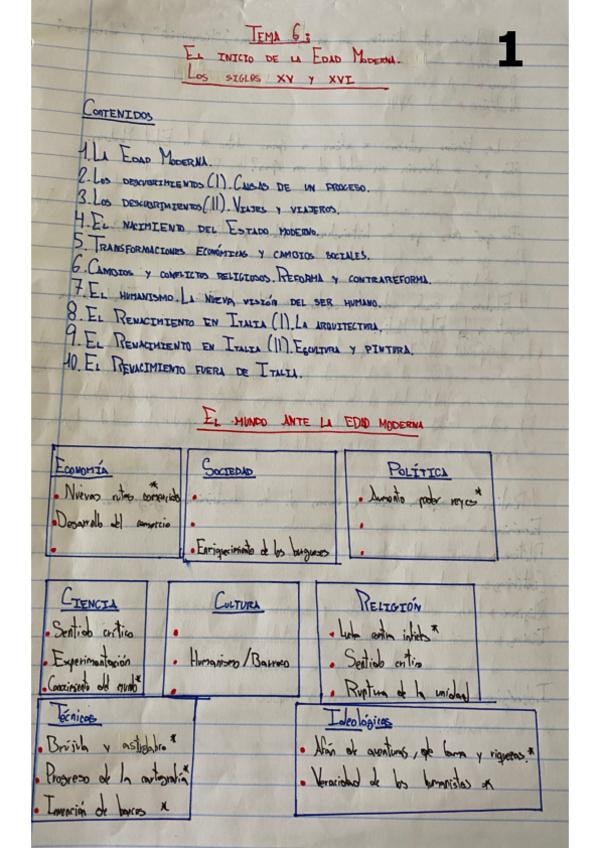 TEMA 6:
EL INICIO DE LA EDAD MODERNA.
LOS SIGLOS XV Y XVI
1
CONTENIDOS
1. LA EDAD MODERNA.
2. LOS DESCUBRIMIENTOS (I). CAUSAS DE UN PROCESO.
3. LOS DESCUBRIMIENTOS (II). VIAJES Y VIAJEROS.
4. EL NACIMIENTO DEL ESTADO MODERNO.
5. TRANSFORMACIONES ECONÓMICAS Y CAMBIOS SOCIALES.
6. CAMBIOS Y CONFLICTOS RELIGIOSOS. REFORMA Y CONTRAREFORMA.
7. EL HUMANISMO. LA NUEVA VISIÓN DEL SER HUMANO.
8. EL RENACIMIENTO EN ITALIA (I). LA ARQUITECTURA.
9. EL RENACIMIENTO EN ITALIA (II). ESCULTURA Y PINTURA.
10. EL RENACIMIENTO FUERA DE ITALIA.
EL MUNDO ANTE LA EDAD MODERNA
ECONOMÍA
• Nuevas rutas comerciales*
• Desarrollo del comercio
•
SOCIEDAD
•
•
• Enriquecimiento de los burgueses
POLÍTICA
• Aumento poder reyes*
•
•
CIENCIA
• Sentido crítico
• Experimentación
• Conocimiento del mundo*
CULTURA
•
• Humanismo/Barroco
•
RELIGIÓN
• Lucha contra infieles*
• Sentido crítico
• Ruptura de la unidad
Técnicas
• Brújula y astrolabio*
• Progreso de la cartografía*
• Invención de barcos *
Ideológicas
• Afán de aventuras, de fama y riquezas.*
• Veracidad de los humanistas *